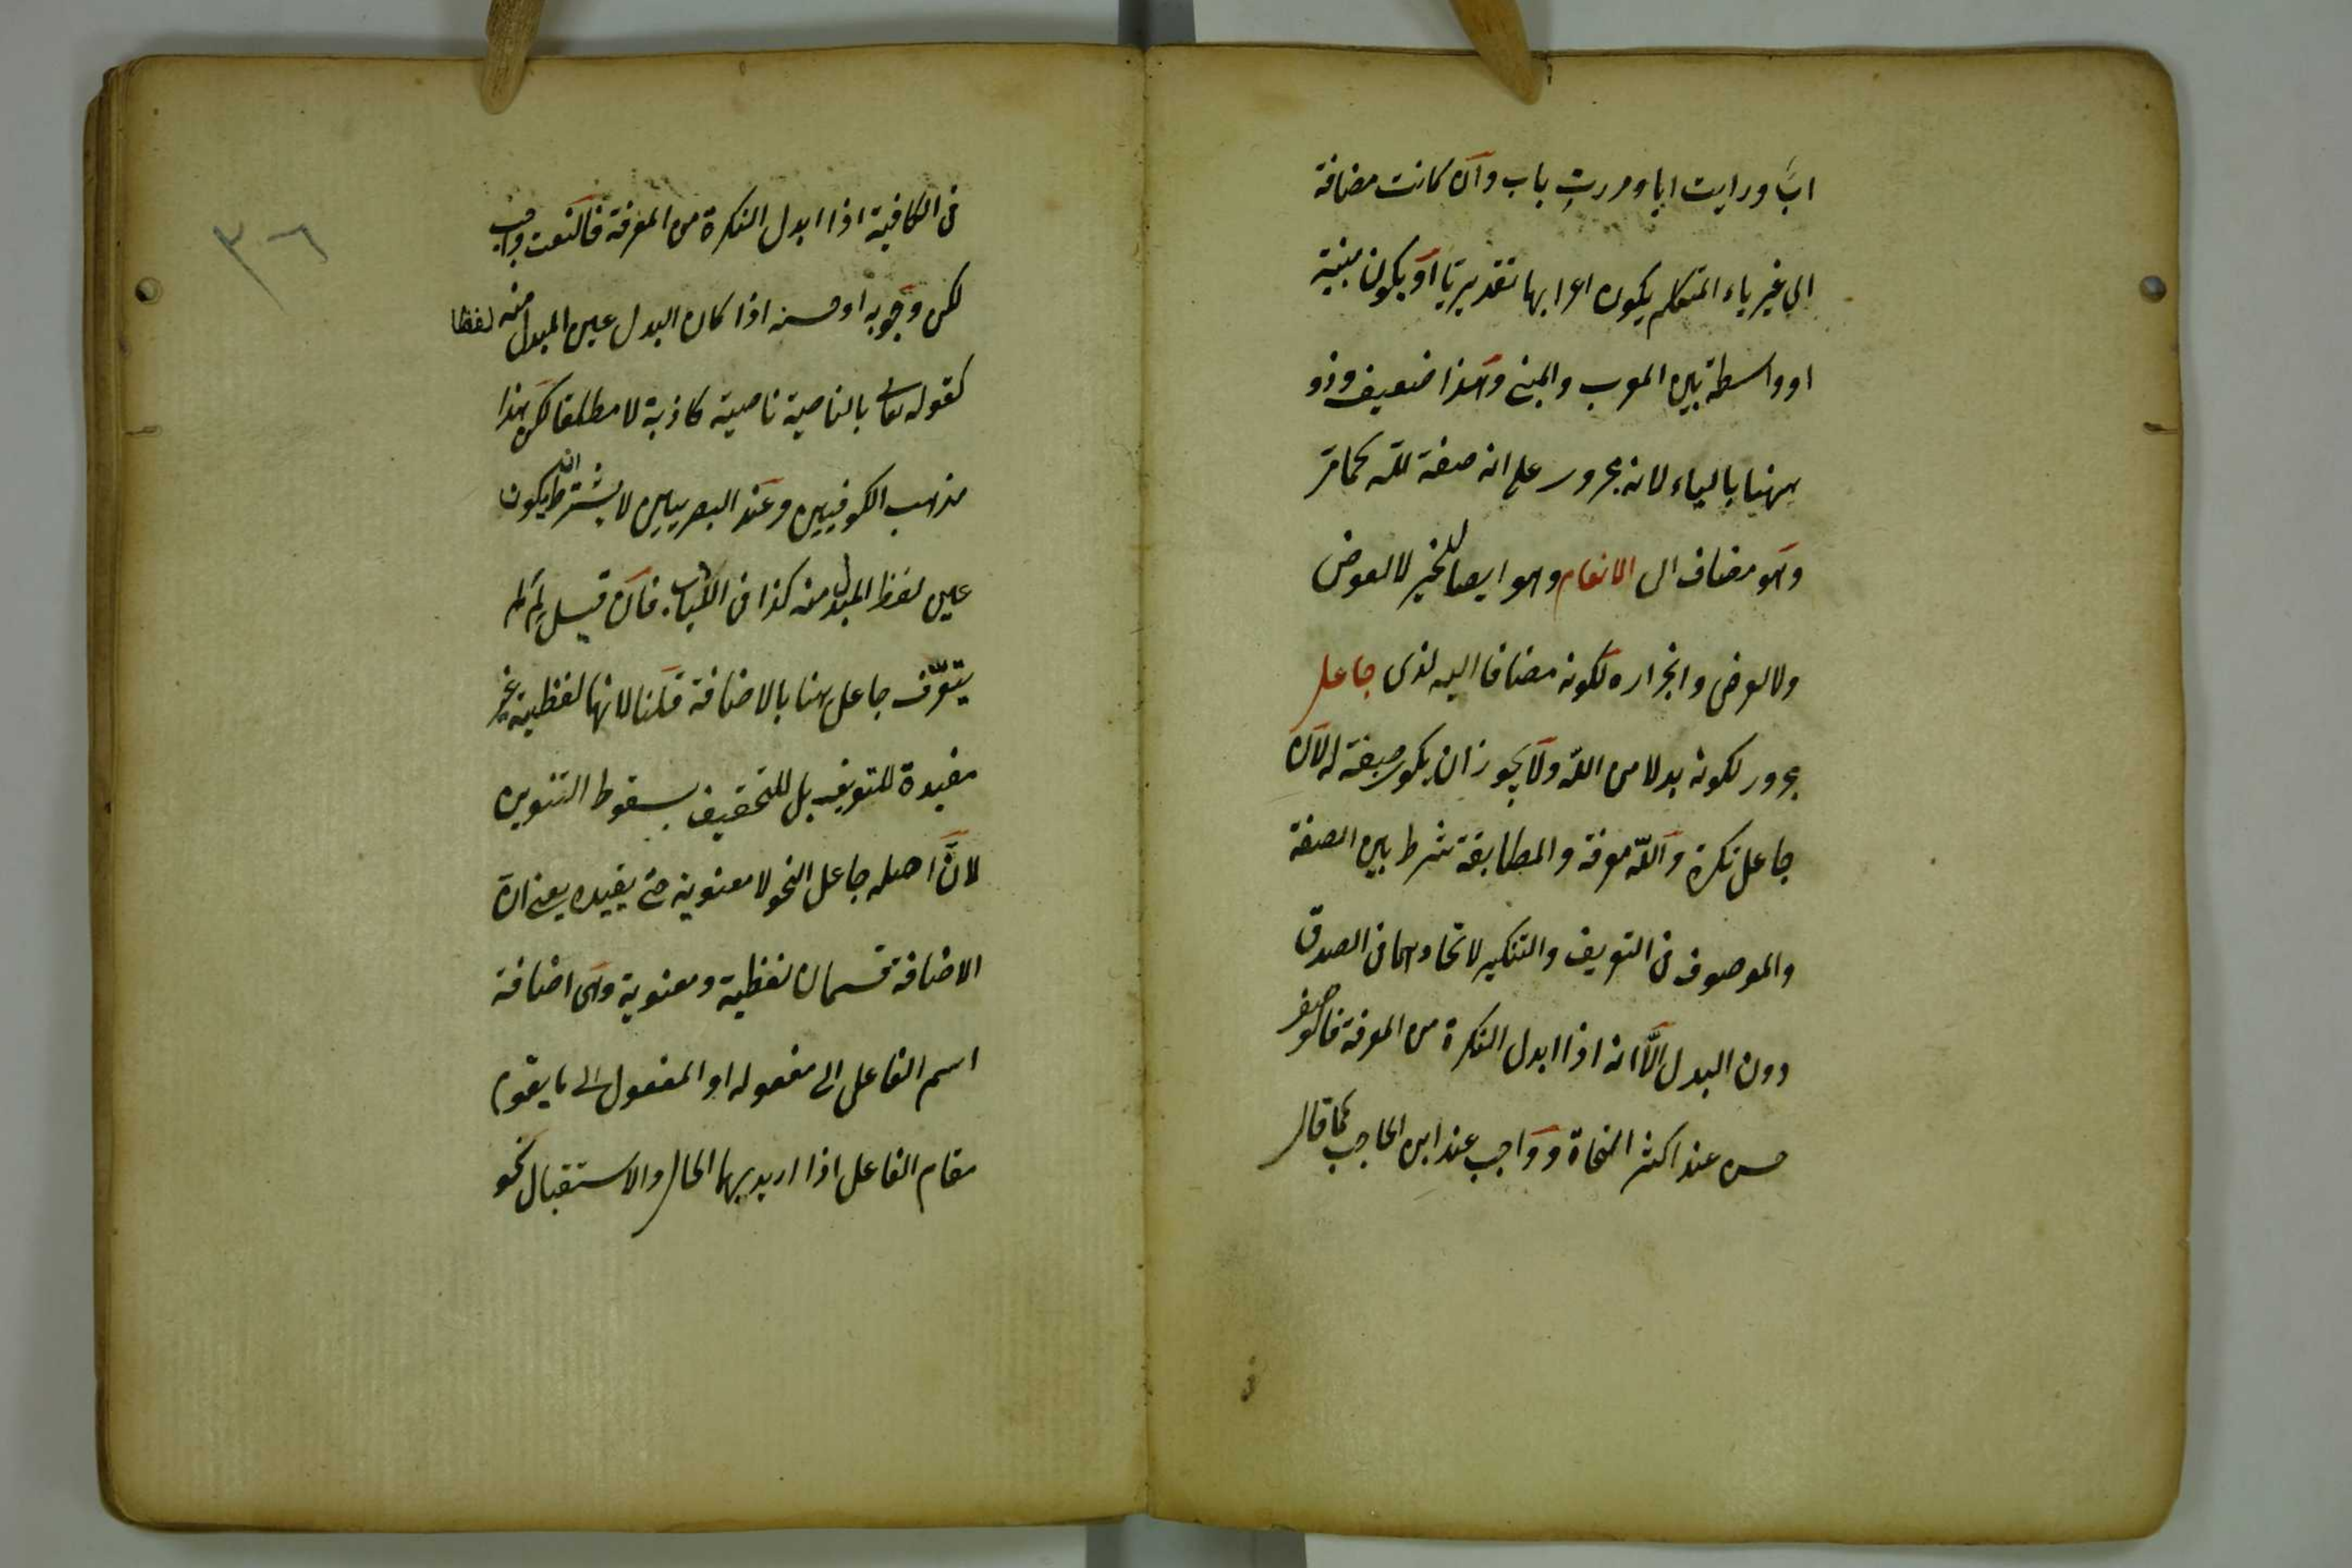 اب ورايت ابا ومررت باب وان كانت مضافة
الي غير ياء المتكلم يكون اعرابها تقديريا او يكون مبنية
او واسطة بين المعرب والمبني وهذا ضعيف وذو
ههنا بالياء لانه مجرور على انه صفة لله كما مر
وهو مضاف الى الانعام وهو ايصال الخير لا لعوض
ولا لعرض وانجراره لكونه مضافا اليه لذى جاعل
مجرور لكونه بدلا من الله ولا يجوز ان يكون صفة له لان
جاعل نكرة والله معرفة والمطابقة شرط بين الصفة
والموصوف في التعريف والتنكير لاتحادهما في الصدق
دون البدل الا انه اذا ابدل النكرة من المعرفة فالوصف
حسن عند اكثر النحاة وواجب عند ابن الحاجب كما قال
٣٦
في الكافية اذا ابدل النكرة من المعرفة فالنعت واجب
لكن وجوبه او حسنه اذا كان البدل عين المبدل منه لفظا
كقوله تعالى بالناصية ناصية كاذبة لا مطلقا لكن هذا
مذهب الكوفيين وعند البصريين لا يشترط ان يكون
عين لفظ المبدل منه كذا في اللباب فان قيل لم لم
يتعرف جاعل هنا بالاضافة قلنا لانها لفظية غير
مفيدة للتعريف بل للتخفيف بسقوط التنوين
لان اصله جاعل النحو لا معنوية حتى يفيده يعني ان
الاضافة قسمان لفظية ومعنوية وهى اضافة
اسم الفاعل الى مفعوله او المفعول الى ما يقوم
مقام الفاعل اذا اريد بهما الحال والاستقبال نحو